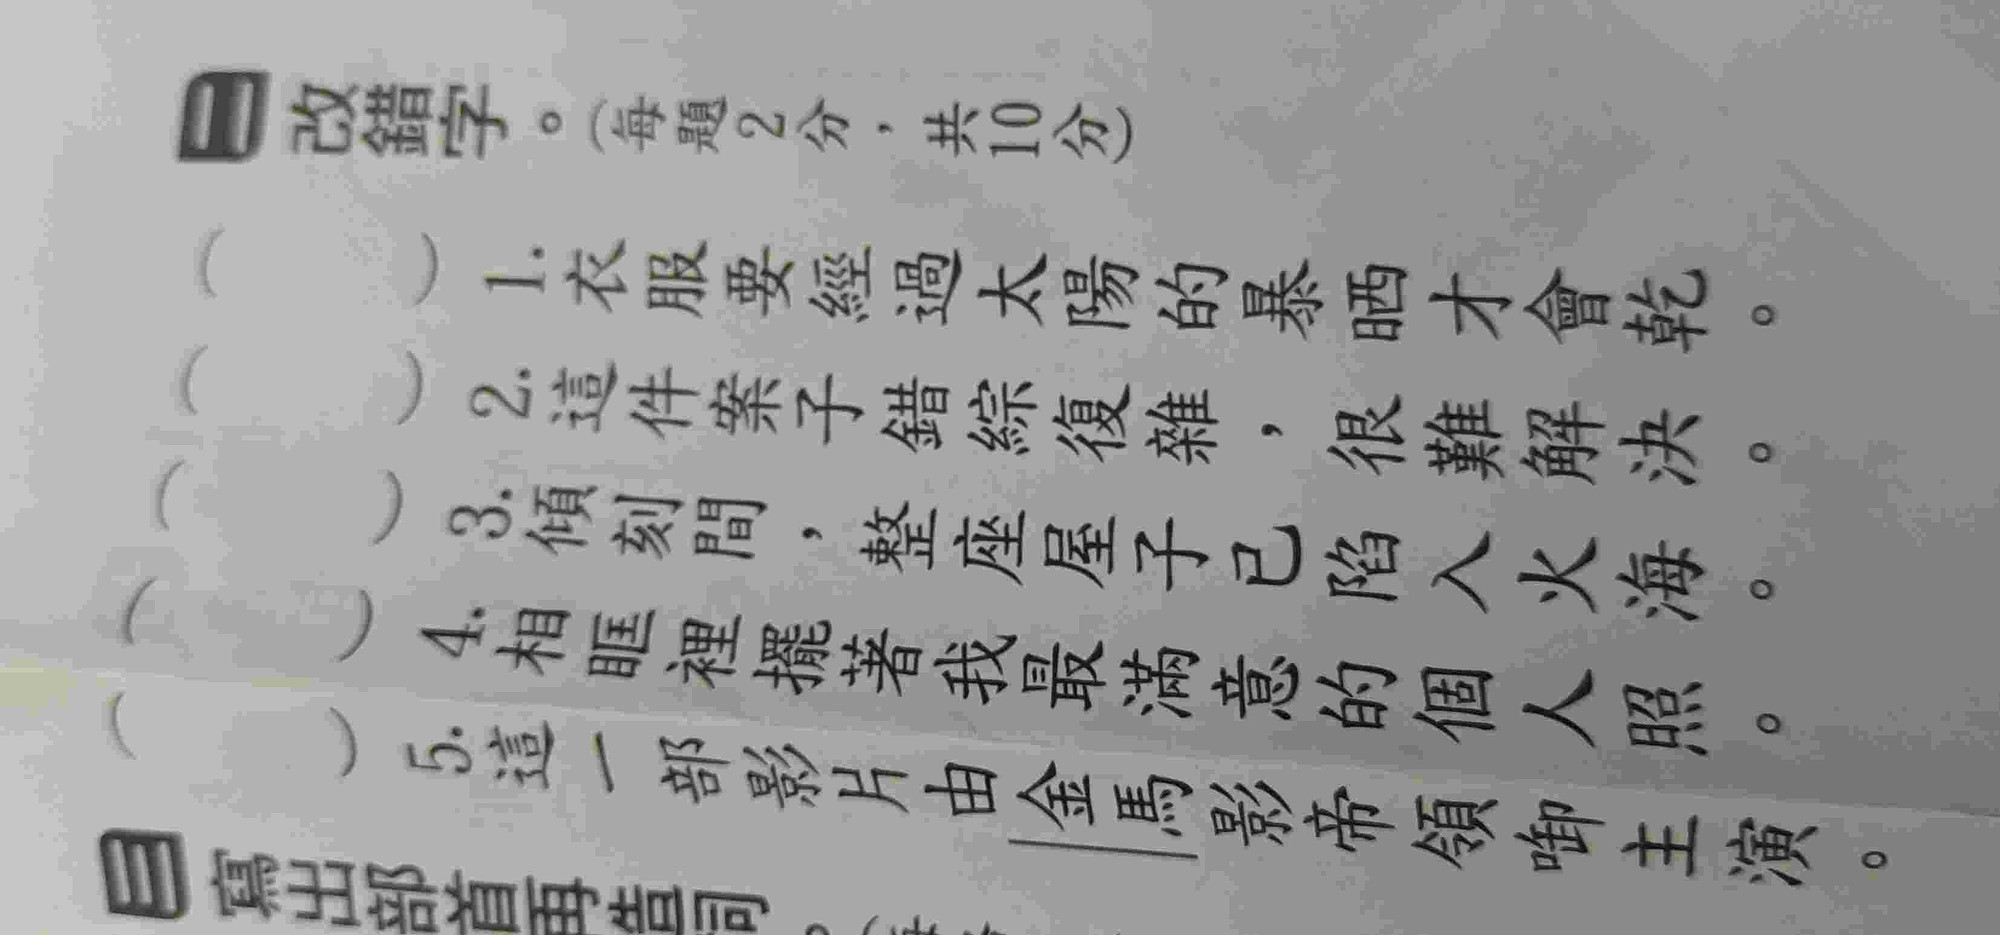 二 改錯字。(每題2分，共10分)
( ) 1. 衣服要經過太陽的暴晒才會乾。
( ) 2. 這件案子錯綜復雜，很難解決。
( ) 3. 傾刻間，整座屋子已陷入火海。
( ) 4. 相眶裡擺著我最滿意的個人照。
( ) 5. 這一部影片由金馬影帝領啣主演。
三 寫出部首再造詞。(每